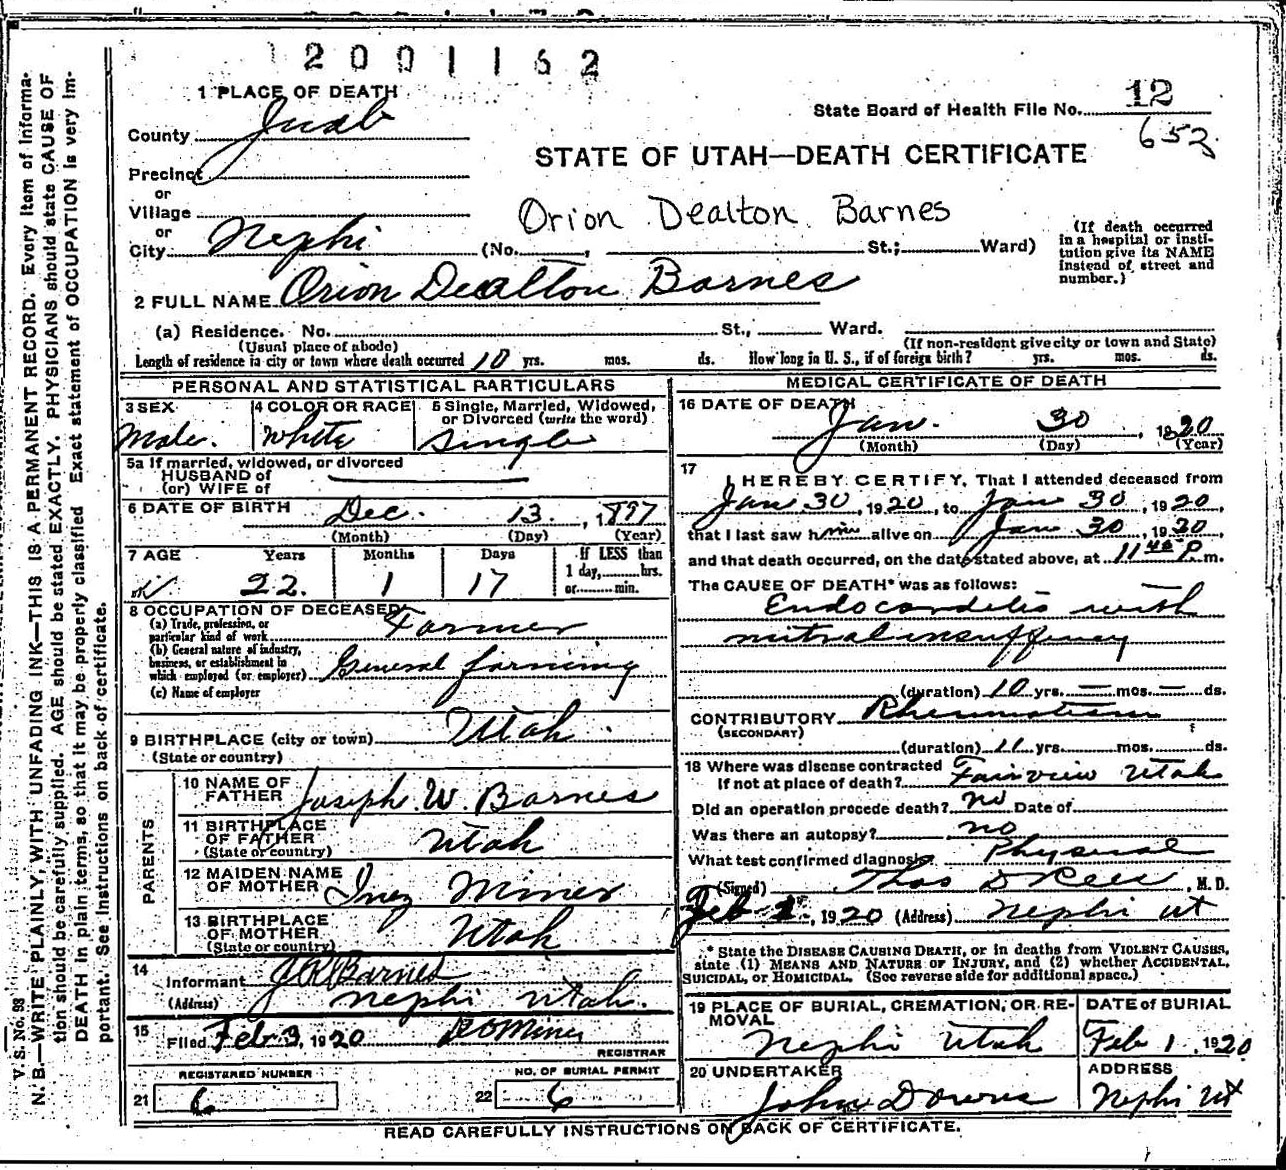 2001162
1 PLACE OF DEATH
County Juab
State Board of Health File No. 12
652
STATE OF UTAH—DEATH CERTIFICATE
Precinct
or
Village
Orion Dealton Barnes
or
City Nephi (No. , St.; Ward)
(If death occurred
in a hospital or insti-
tution give its NAME
instead of street and
number.)
2 FULL NAME Orion Dealton Barnes
(a) Residence. No. St., Ward.
(Usual place of abode) (If non-resident give city or town and State)
Length of residence in city or town where death occurred 10 yrs. mos. ds. How long in U. S., if of foreign birth? yrs. mos. ds.
PERSONAL AND STATISTICAL PARTICULARS
3 SEX 4 COLOR OR RACE 5 Single, Married, Widowed,
or Divorced (write the word)
Male. White Single
5a If married, widowed, or divorced
HUSBAND of
(or) WIFE of
6 DATE OF BIRTH Dec. 13, 1897
(Month) (Day) (Year)
7 AGE Years Months Days If LESS than
1 day, hrs.
or min.
22. 1 17
8 OCCUPATION OF DECEASED
(a) Trade, profession, or
particular kind of work Farmer
(b) General nature of industry,
business, or establishment in
which employed (or employer) General farming
(c) Name of employer
9 BIRTHPLACE (city or town) Utah
(State or country)
PARENTS
10 NAME OF
FATHER Joseph W. Barnes
11 BIRTHPLACE
OF FATHER Utah
(State or country)
12 MAIDEN NAME
OF MOTHER Inez Miner
13 BIRTHPLACE
OF MOTHER Utah
(State or country)
14
Informant Barnes
(Address) Nephi Utah.
15
Filed Feb 3, 1920 Miner
REGISTRAR
REGISTERED NUMBER NO. OF BURIAL PERMIT
21 6 22 6
MEDICAL CERTIFICATE OF DEATH
16 DATE OF DEATH
Jan. 30, 1920
(Month) (Day) (Year)
17
I HEREBY CERTIFY, That I attended deceased from
Jan 30, 1920, to Jan 30, 1920,
that I last saw him alive on Jan 30, 1920,
and that death occurred, on the date stated above, at 11 45 P. m.
The CAUSE OF DEATH* was as follows:
Endocarditis with
mitral insuffiency
(duration) 10 yrs. — mos. — ds.
CONTRIBUTORY Rheumatism
(SECONDARY)
(duration) 11 yrs. mos. ds.
18 Where was disease contracted
If not at place of death? Fairview Utah
Did an operation precede death? no Date of
Was there an autopsy? no
What test confirmed diagnosis Physical
(Signed) Thos D Rees, M. D.
Feb 1, 1920 (Address) Nephi Ut
* State the DISEASE CAUSING DEATH, or in deaths from VIOLENT CAUSES,
state (1) MEANS AND NATURE OF INJURY, and (2) whether ACCIDENTAL,
SUICIDAL, or HOMICIDAL. (See reverse side for additional space.)
19 PLACE OF BURIAL, CREMATION, OR RE-
MOVAL
Nephi Utah
DATE of BURIAL
Feb 1, 1920
20 UNDERTAKER
John Downs
ADDRESS
Nephi Ut
READ CAREFULLY INSTRUCTIONS ON BACK OF CERTIFICATE.
V. S. No. 98
N. B.—WRITE PLAINLY, WITH UNFADING INK—THIS IS A PERMANENT RECORD. Every item of informa-
tion should be carefully supplied. AGE should be stated EXACTLY. PHYSICIANS should state CAUSE OF
DEATH in plain terms, so that it may be properly classified. Exact statement of OCCUPATION is very im-
portant. See instructions on back of certificate.